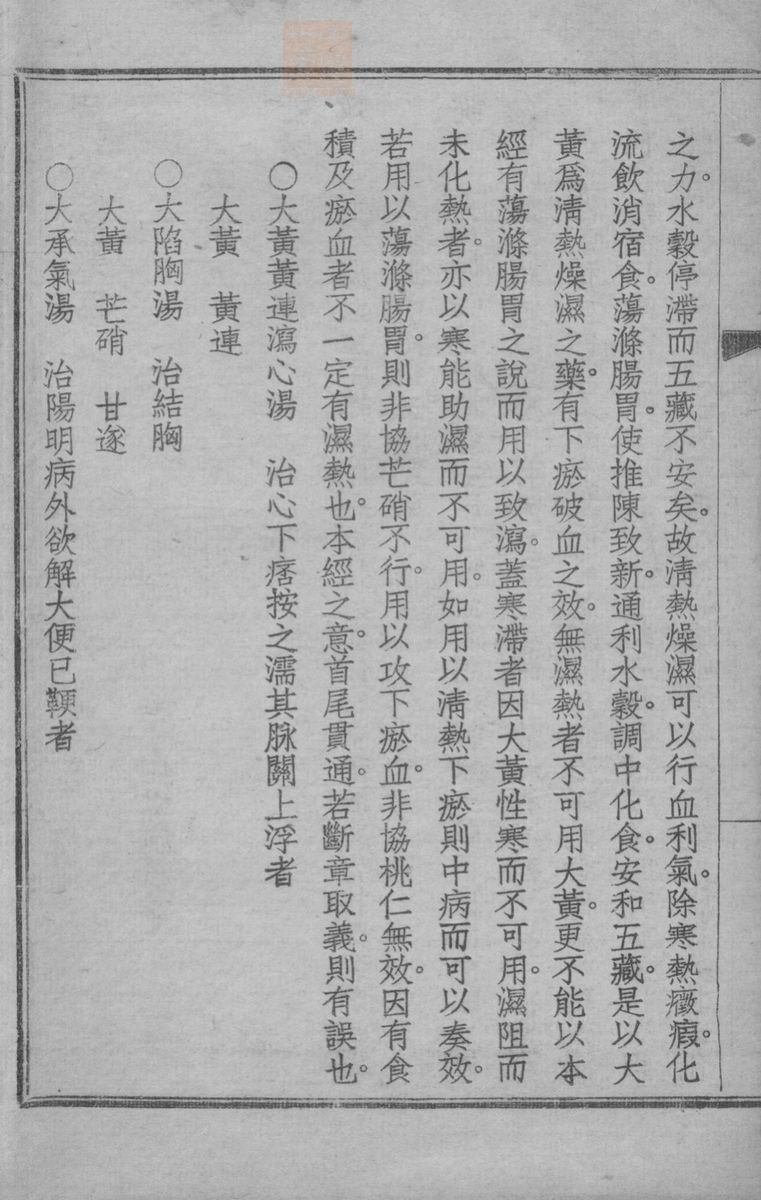 之力。水穀停滯而五藏不安矣。故清熱燥濕可以行血利氣。除寒熱癥瘕。化
流飲消宿食。蕩滌腸胃。使推陳致新。通利水穀。調中化食。安和五藏。是以大
黃爲清熱燥濕之藥。有下瘀破血之效。無濕熱者不可用大黃。更不能以本
經有蕩滌腸胃之說而用以致瀉。蓋寒滯者因大黃性寒而不可用。濕阻而
未化熱者。亦以寒能助濕而不可用。如用以清熱下瘀則中病而可以奏效。
若用以蕩滌腸胃。則非協芒硝不行。用以攻下瘀血。非協桃仁無效。因有食
積及瘀血者不一定有濕熱也。本經之意。首尾貫通。若斷章取義。則有誤也。
○大黃黃連瀉心湯　治心下痞按之濡其脉關上浮者
大黃　黃連
○大陷胸湯　治結胸
大黃　芒硝　甘遂
○大承氣湯　治陽明病外欲解大便已鞕者